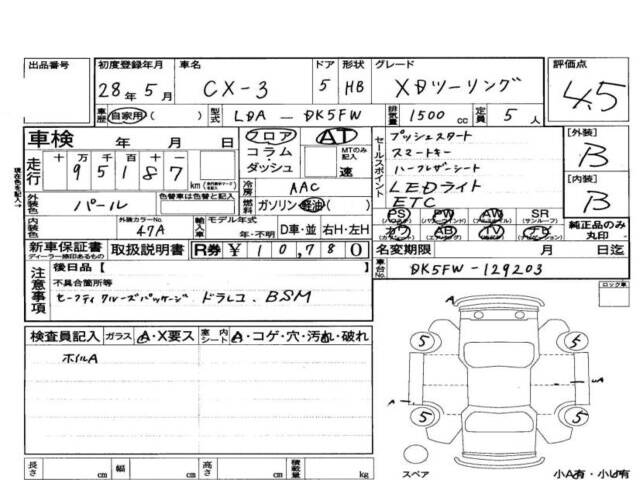 出品番号 初度登録年月 車名 ドア 形状 グレード 評価点
28年 5月 CX-3 5 HB XDツーリング 4.5
車歴 自家用 ( ) 型式 LDA — DK5FW 排気量 1500 cc 定員 5 人
車検 年 月 日
フロア コラム・ダッシュ AT MTのみ記入 速
現在を記入→
走行 十 万 千 百 十
9 5 1 8 7 km
冷房 AAC
外装色 パール 色替車は色替と記入
燃料 ガソリン 軽油 ( )
内装色 外装カラーNo. 47A 輸入車 モデル年式 年・不明 D車・並 右H・左H
セールスポイント
プッシュスタート
スマートキー
ハーフレザーシート
LEDライト
ETC
PS PW AW SR
(サンルーフ)
AB TV ナビ
[外装]
B
[内装]
B
純正品のみ丸印
新車保証書 ディーラー捺印あるもの 取扱説明書 R券 ¥ 10,780
名変期限 月 日迄
車台No. DK5FW-129203
注意事項
後日品【
不具合箇所等
セーフティクルーズパッケージ ドラレコ、BSM
ロック車
検査員記入 ガラス A・X要ス 室内シート A・コゲ・穴・汚れ・破れ
ホイルA
A
5 5
A
5 5
スペア
小A有・小U有
長さ cm 幅 cm 高さ cm 積載量 kg